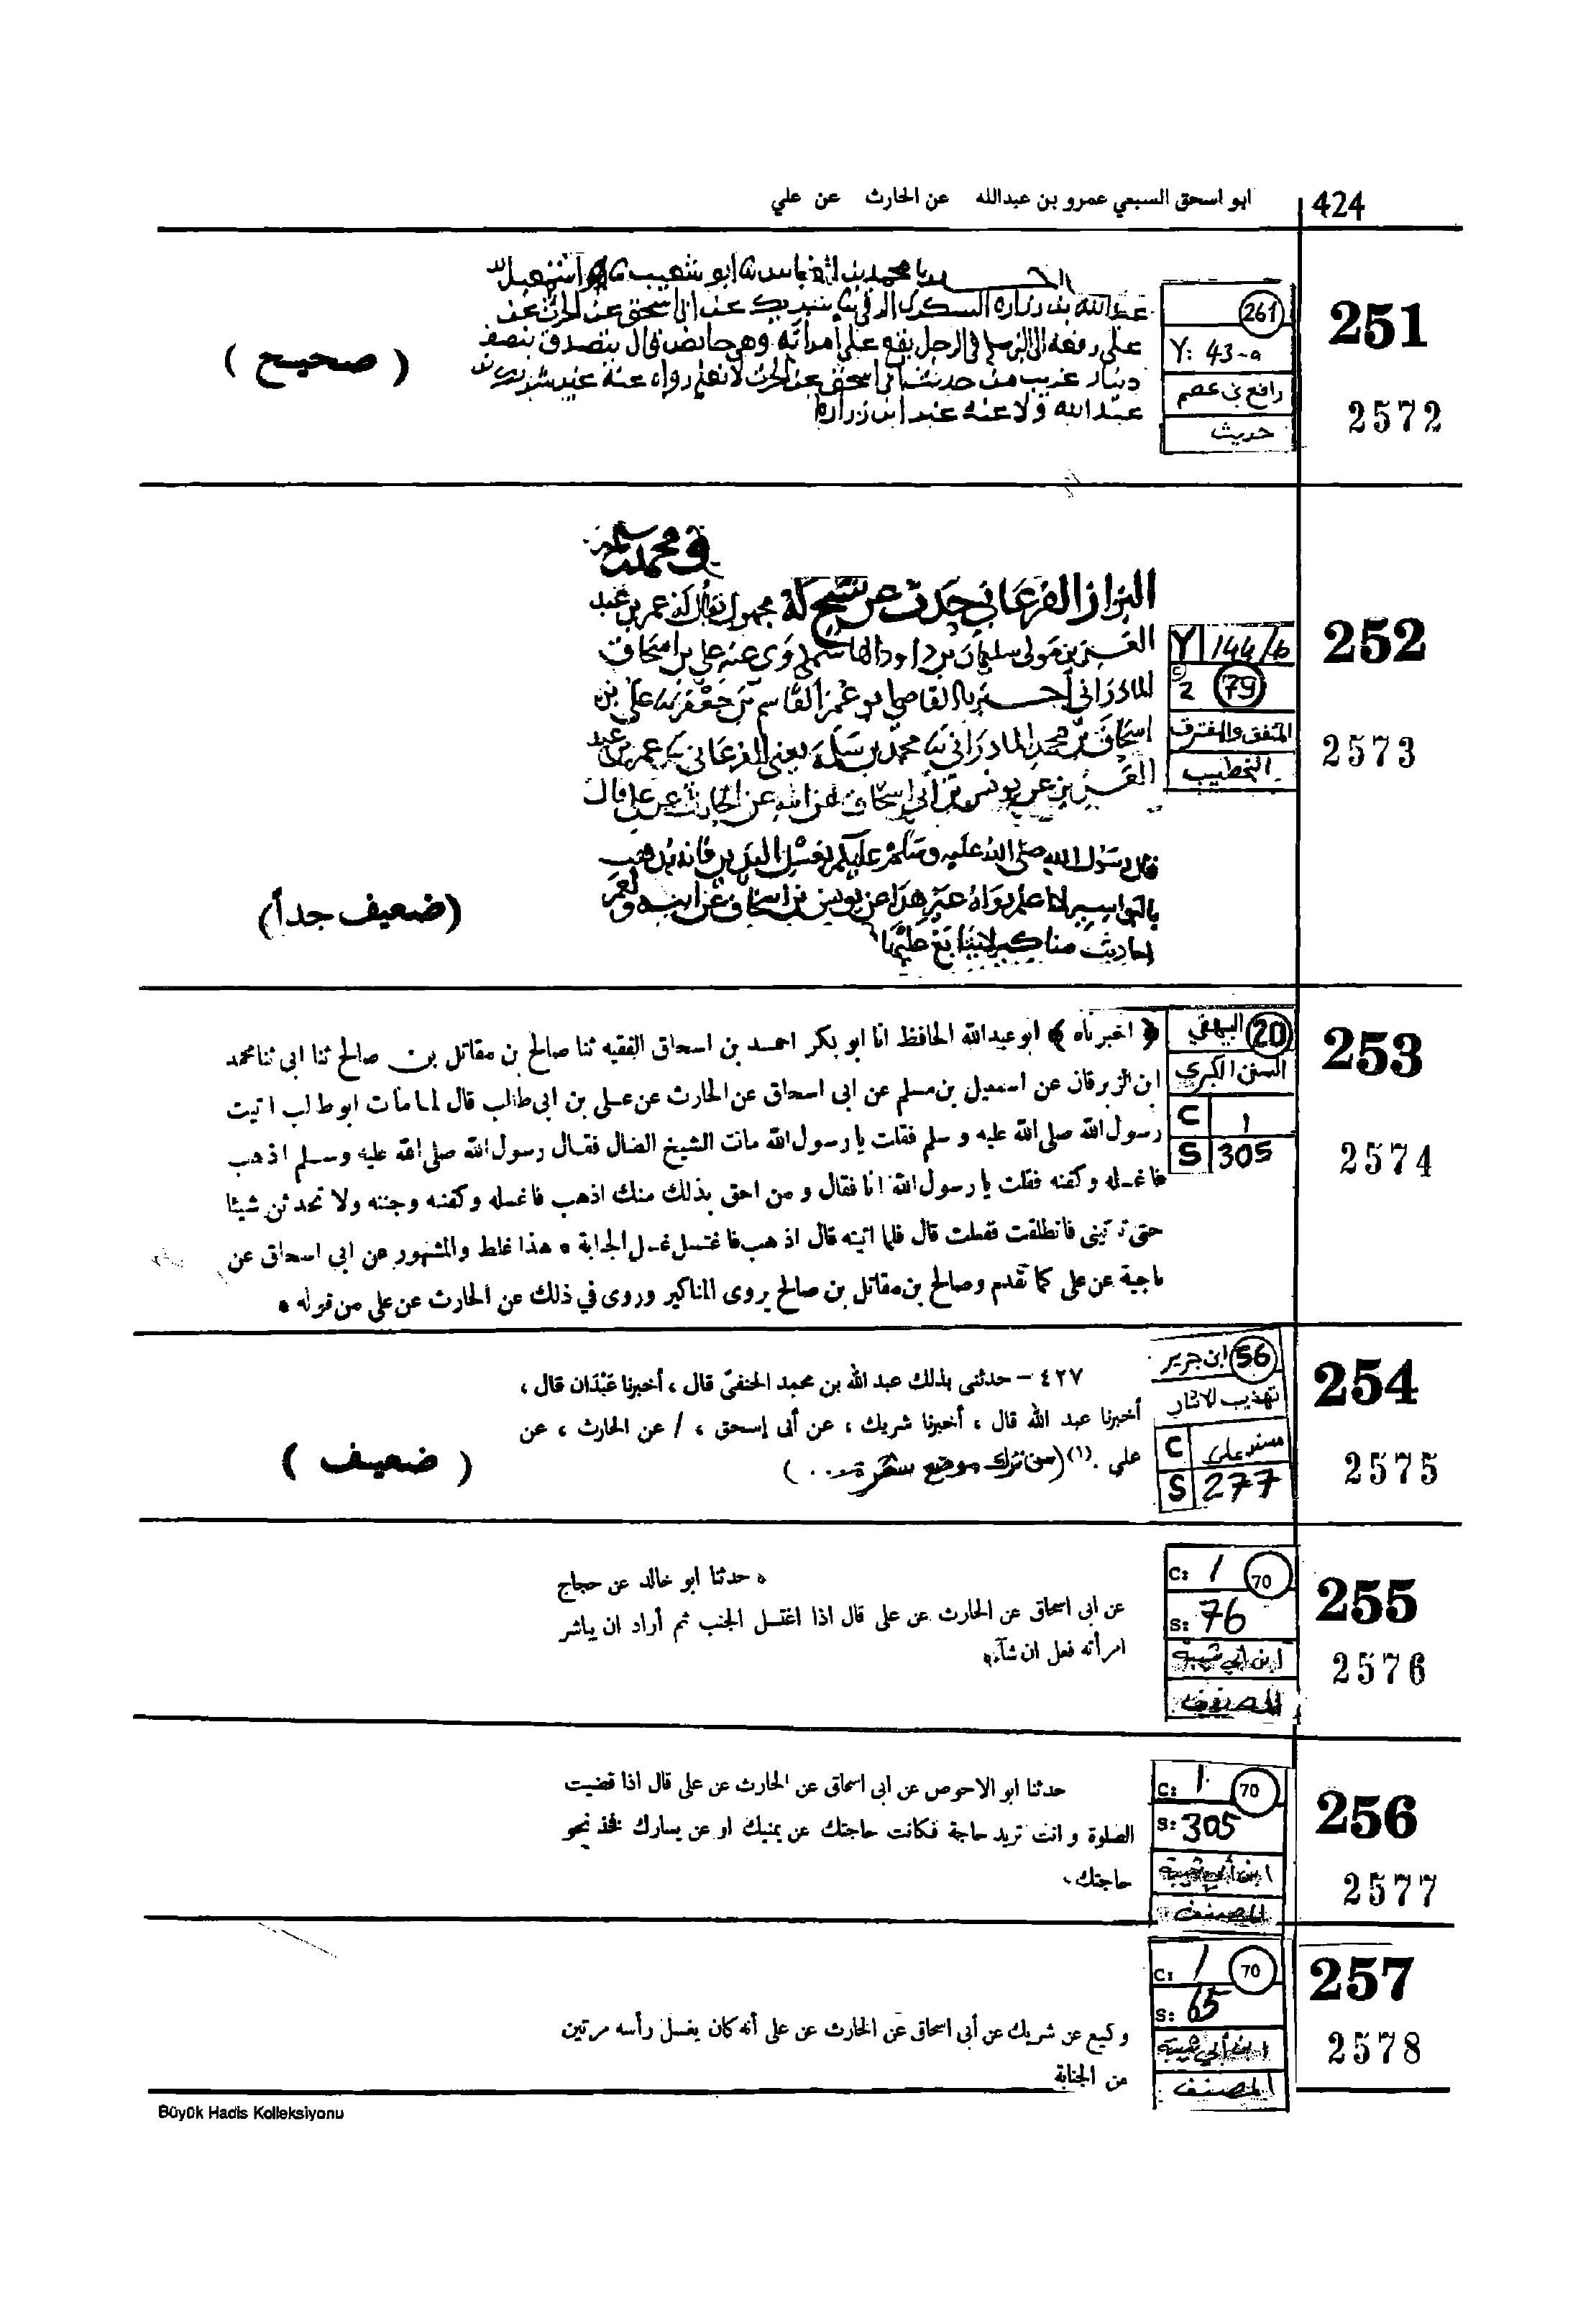 424
ابو اسحق السبعي عمرو بن عبدالله عن الحارث عن علي
251
2572
261
Y: 43-a
رافع بن عصم
حديث
عبد الله بن زراره السكري الرقي شريك عن ابي اسحق عن الحرث عن
علي رفعه الى النبي في الرجل يقع على امرأته وهي حائض قال يتصدق بنصف
دينار غريب من حديث ابي اسحق عن الحرث لا نعلم رواه عنه غير شريك بن
عبد الله ولا عنه غير ابن زراره
( صحيح )
252
2573
Y 144/b
2 79
المتفق والمفترق
الخطيب
محمد بن
البزاز الفرغاني حدث عن شيخ له مجهول يقال له عمر بن عبد
مولى سليمان بن داود الهاشمي روى عنه علي بن اسحاق
المادراني القاضي ابو عمر القاسم بن جعفر علي بن
اسحاق بن محمد المادراني محمد بن سلمة يعني الفرغاني عمر بن عبد
عن يونس بن ابي اسحاق عن ابيه عن الحارث عن علي قال
قال رسول الله صلى الله عليه وسلم عليكم بغسل الدبر فانه يذهب
بالبواسير لا اعلم رواه غير هذا عن يونس بن اسحاق عن ابيه ولعمر
احاديث مناكير لا يتابع عليها
(ضعيف جداً)
253
2574
20 البيهقي
السنن الكبرى
C 1
S 305
﴿ اخبرناه ﴾ ابو عبدالله الحافظ انا ابو بكر احمد بن اسحاق الفقيه ثنا صالح بن مقاتل بن صالح ثنا ابى ثنا محمد
ابن الزبرقان عن اسمعيل بن مسلم عن ابى اسحاق عن الحارث عن على بن ابى طالب قال لما مات ابو طالب اتيت
رسول الله صلى الله عليه وسلم فقلت يا رسول الله مات الشيخ الضال فقال رسول الله صلى الله عليه وسلم اذهب
فاغسله وكفنه فقلت يا رسول الله انا فقال و من احق بذلك منك اذهب فاغسله وكفنه وجننه ولا تحدثن شيئا
حتى تأتينى فانطلقت ففعلت قال فلما اتيته قال اذهب فاغتسل غسل الجنابة ٭ هذا غلط والمشهور عن ابى اسحاق عن
ناجية عن على كما تقدم وصالح بن مقاتل بن صالح يروى المناكير وروى في ذلك عن الحارث عن على من قوله ٭
254
2575
56 ابن جرير
تهذيب الاثار
C مسند علي
S 277
٤٢٧ – حدثنى بذلك عبد الله بن محمد الحنفىّ قال ، أخبرنا عَبْدَان قال ،
أخبرنا عبد الله قال ، أخبرنا شريك ، عن أبى إسحق ، / عن الحارث ، عن
على . (١) (من ترك موضع شعرة . . . )
( ضعيف )
255
2576
C: 1 70
S: 76
ابن أبي شيبة
المصنف
٭ حدثنا ابو خالد عن حجاج
عن ابى اسحاق عن الحارث عن على قال اذا اغتسل الجنب ثم أراد ان يباشر
امرأته فعل ان شآء٭
256
2577
C: 1 70
S: 305
ابن أبي شيبة
المصنف
حدثنا ابو الاحوص عن ابى اسحاق عن الحارث عن على قال اذا قضيت
الصلوة و انت تريد حاجة فكانت حاجتك عن يمينك او عن يسارك فخذ نحو
حاجتك .
257
2578
C: 1 70
S: 65
ابن أبي شيبة
المصنف
وكيع عن شريك عن أبى اسحاق عن الحارث عن على أنه كان يغسل رأسه مرتين
من الجنابة
Büyük Hadis Kolleksiyonu